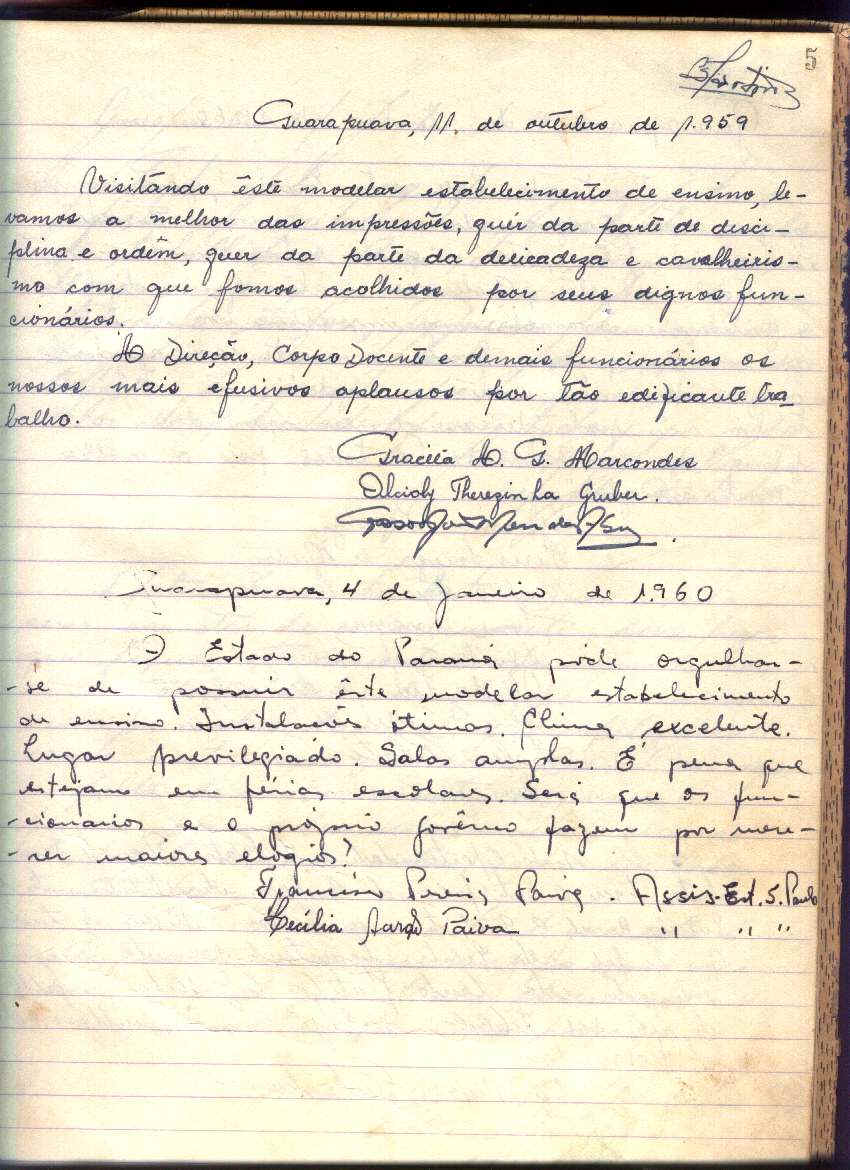 5
Guarapuava, 11. de outubro de 1.959
Visitando êste modelar estabelecimento de ensino, le-
vamos a melhor das impressões, quér da parte de disci-
plina e ordêm, quer da parte da delicadeza e cavalheiris-
mo com que fomos acolhidos por seus dignos fun-
cionários.
A Direção, Corpo Docente e demais funcionários os
nossos mais efusivos aplausos por tão edificante tra
balho.
Gracita A. G. Marcondes
Alcioly Therezinha Gruber.
Guarapuava, 4 de Janeiro de 1.960
O Estado do Paraná póde orgulhar-
-se de possuir êste modelar estabelecimento
de ensino. Instalacões ótimas. Clima excelente.
Lugar previlegiado. Salas amplas. É pena que
estejamos em férias escolares. Será que os fun-
-cionarios e o próprio govêrno fazem por mere-
-cer maiores elogios?
Francisco Pereira Paiva. Assis-Est. S. Paulo
Cecília Paiva " " "